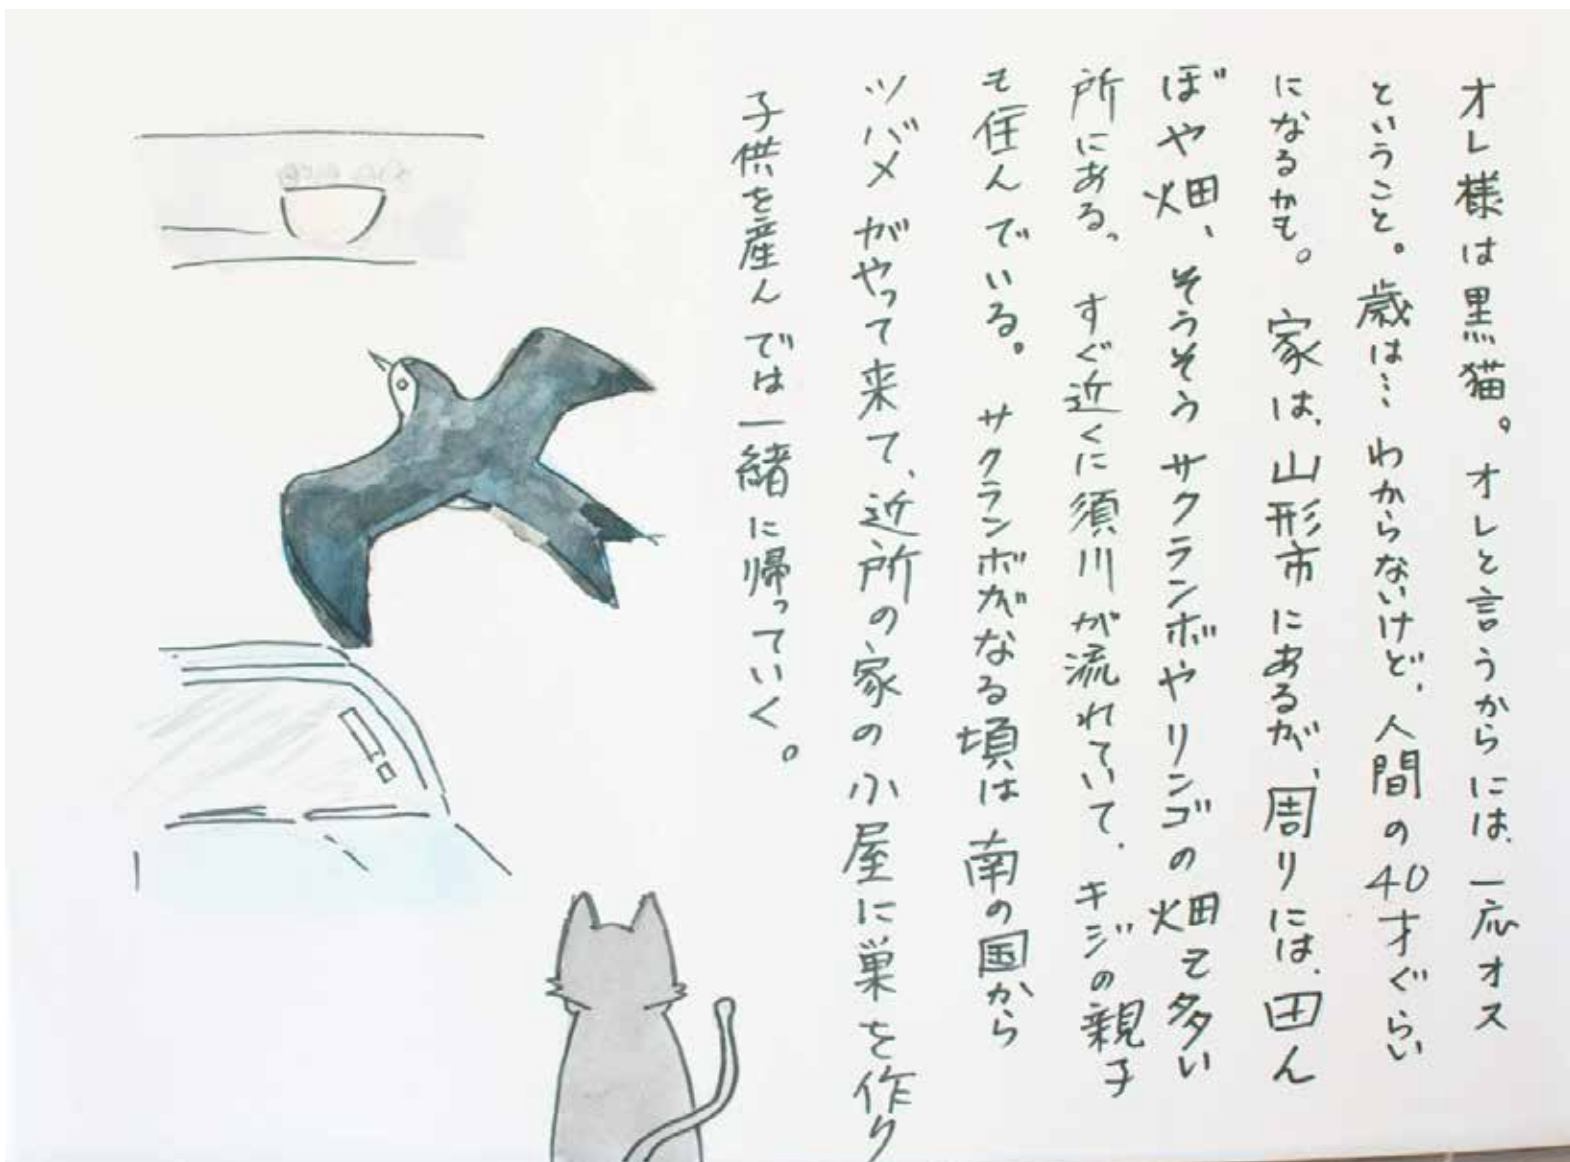 オレ様は黒猫。オレと言うからには、一応オス
ということ。歳は…わからないけど、人間の40才ぐらい
になるかも。家は、山形市にあるが、周りには、田ん
ぼや畑、そうそうサクランボやリンゴの畑も多い
所にある。すぐ近くに須川が流れていて、キジの親子
も住んでいる。サクランボがなる頃は南の国から
ツバメがやって来て、近所の家の小屋に巣を作り
子供を産んでは一緒に帰っていく。